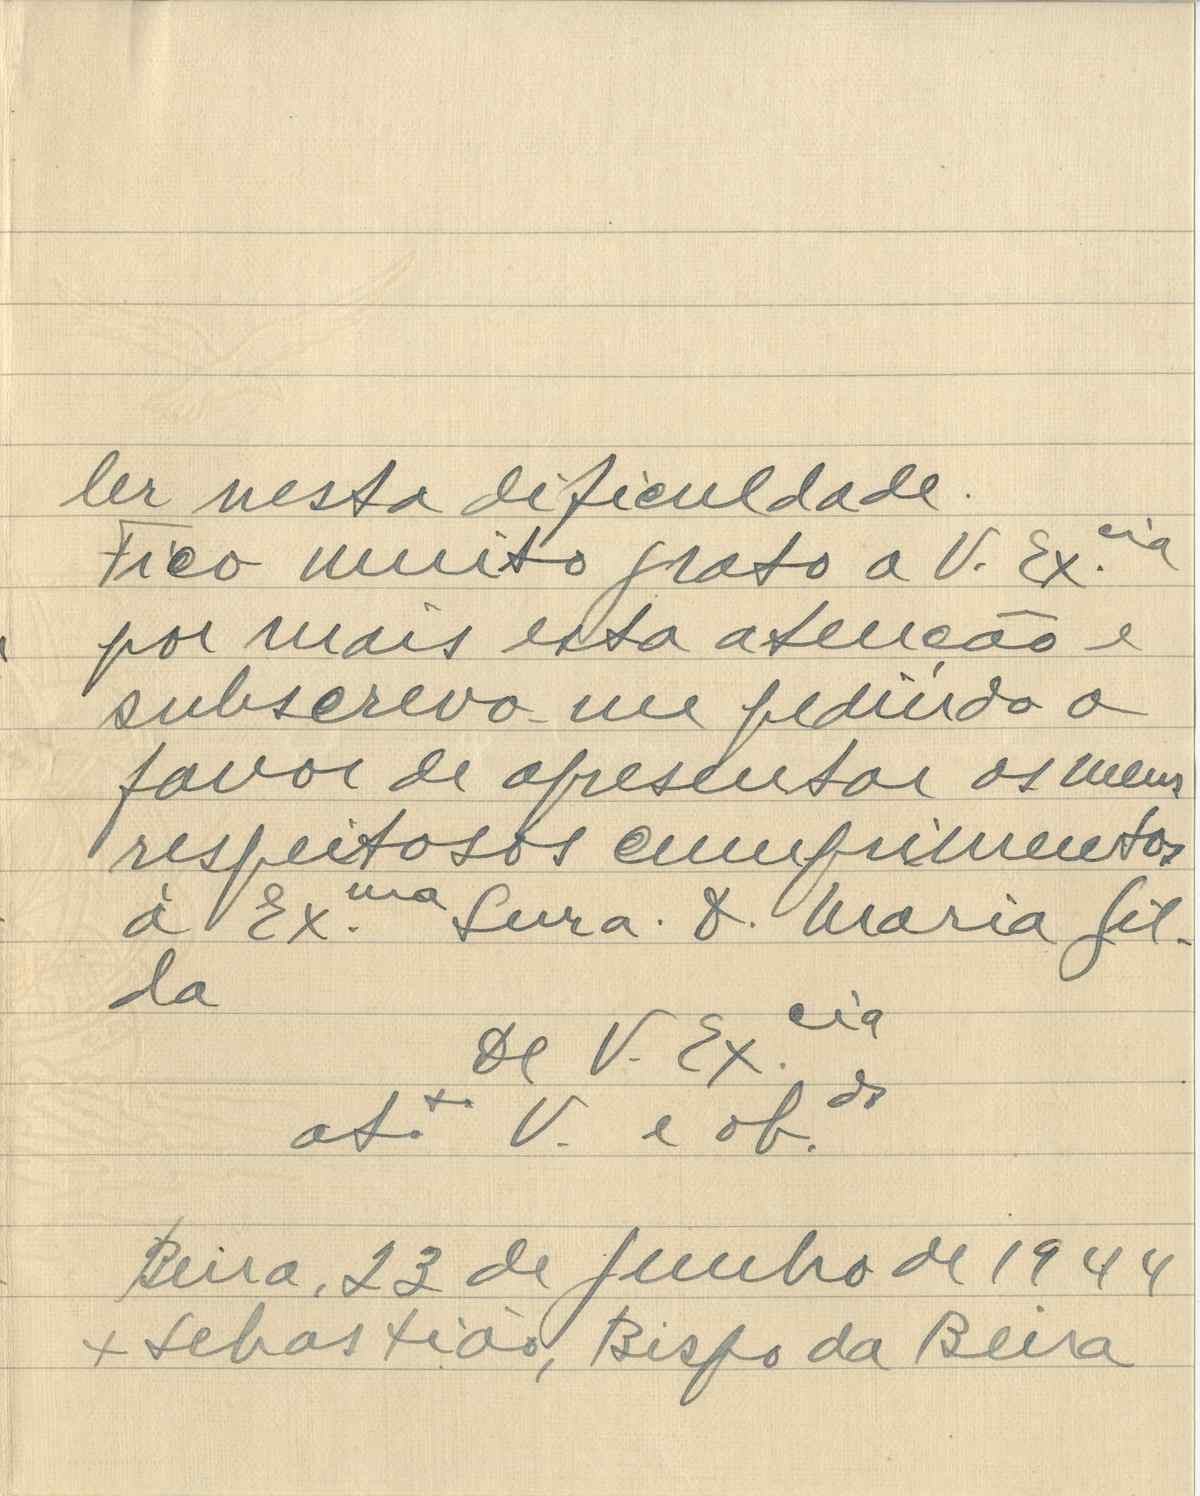 ler nesta dificuldade.
Fico muito grato a V. Ex.cia
por mais esta atenção e
subscrevo-me pedindo o
favor de apresentar os meus
respeitosos cumprimentos
à Ex.ma Snra. D. Maria Gil-
da
De V. Ex.cia
at.to V. e ob.do
Beira, 23 de Junho de 1944
+ Sebastião, Bispo da Beira